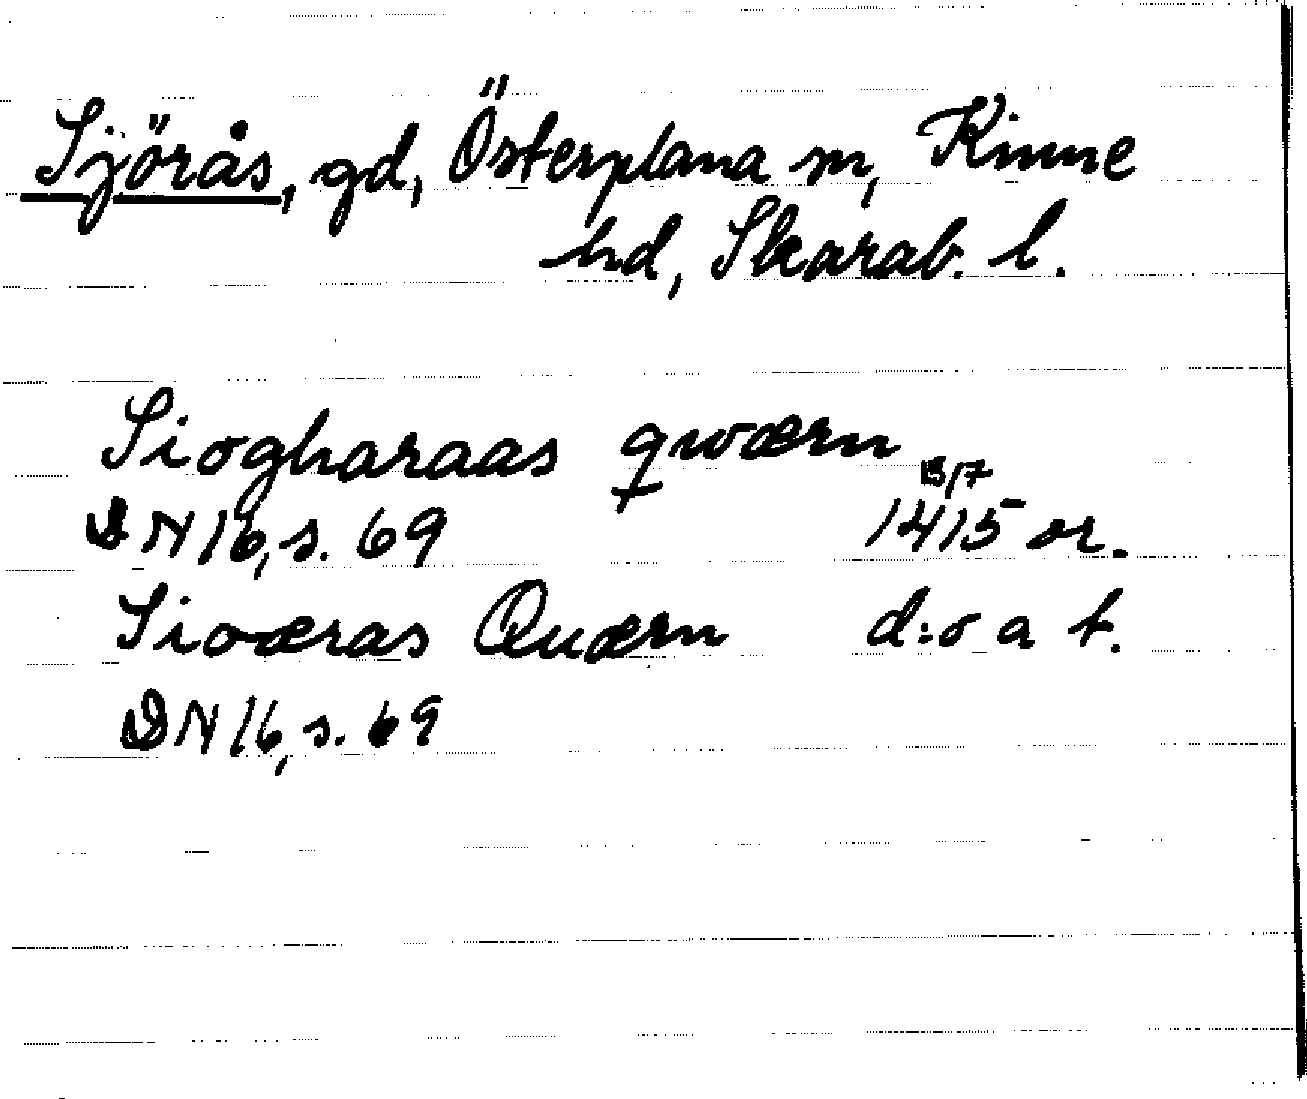 Sjörås, gd, Österplana sn, Kinne
hd, Skarab. l.
Siogharaas qwærn 13/7
DN 16, s. 69 1415 or.
Sioæras Quærn d:o a t.
DN 16, s. 69